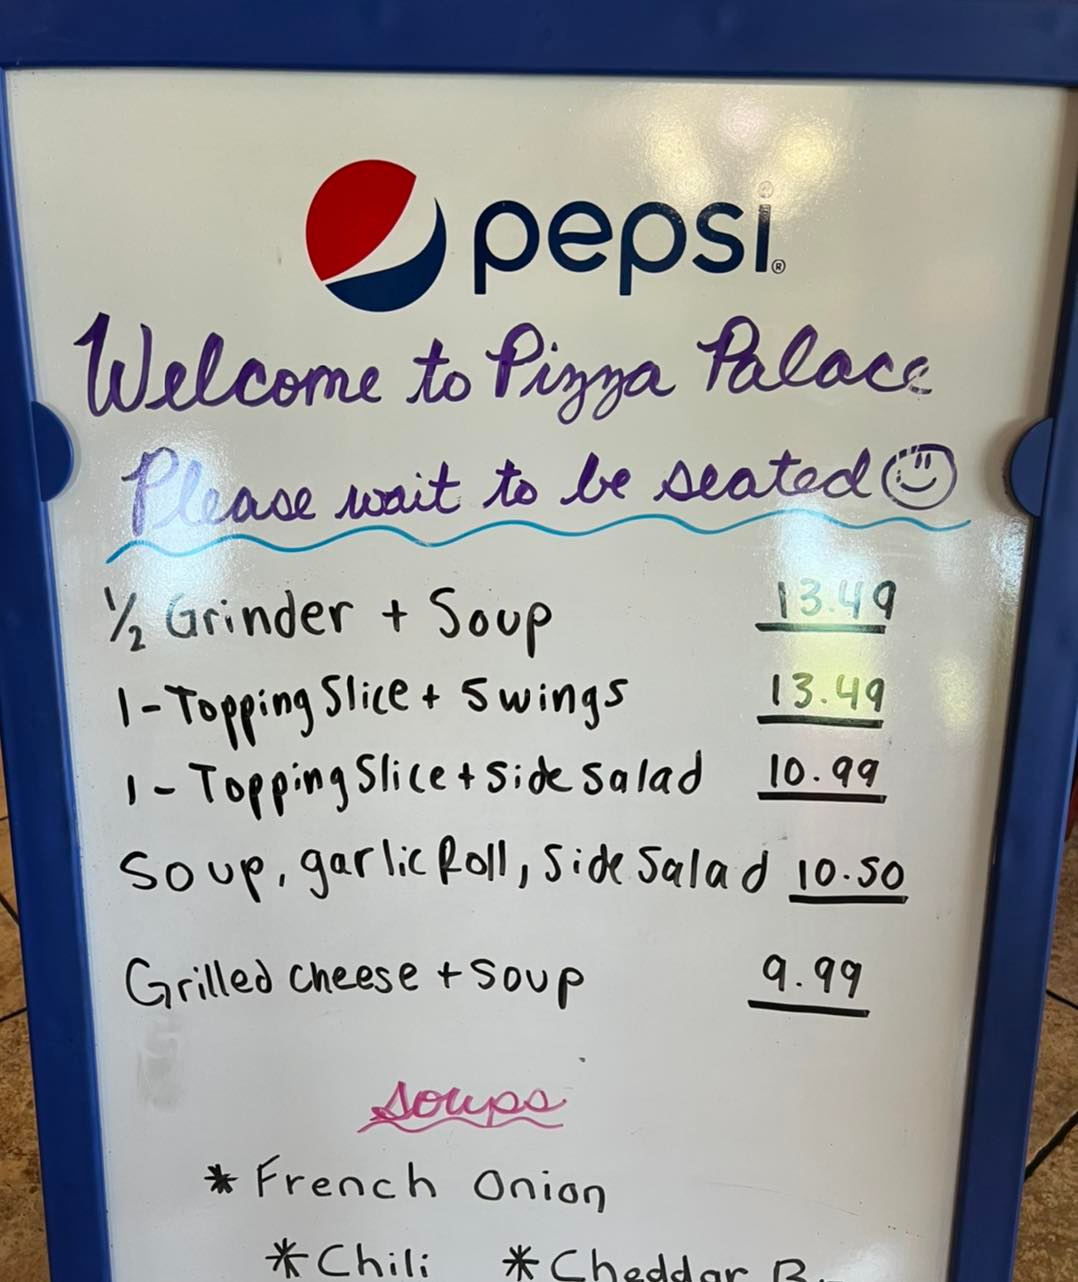 pepsi®
Welcome to Pizza Palace
Please wait to be seated
½ Grinder + Soup 13.49
1-Topping Slice + 5 wings 13.49
1-Topping Slice + Side Salad 10.99
Soup, garlic Roll, Side Salad 10.50
Grilled cheese + Soup 9.99
Soups
* French Onion
* Chili * Cheddar